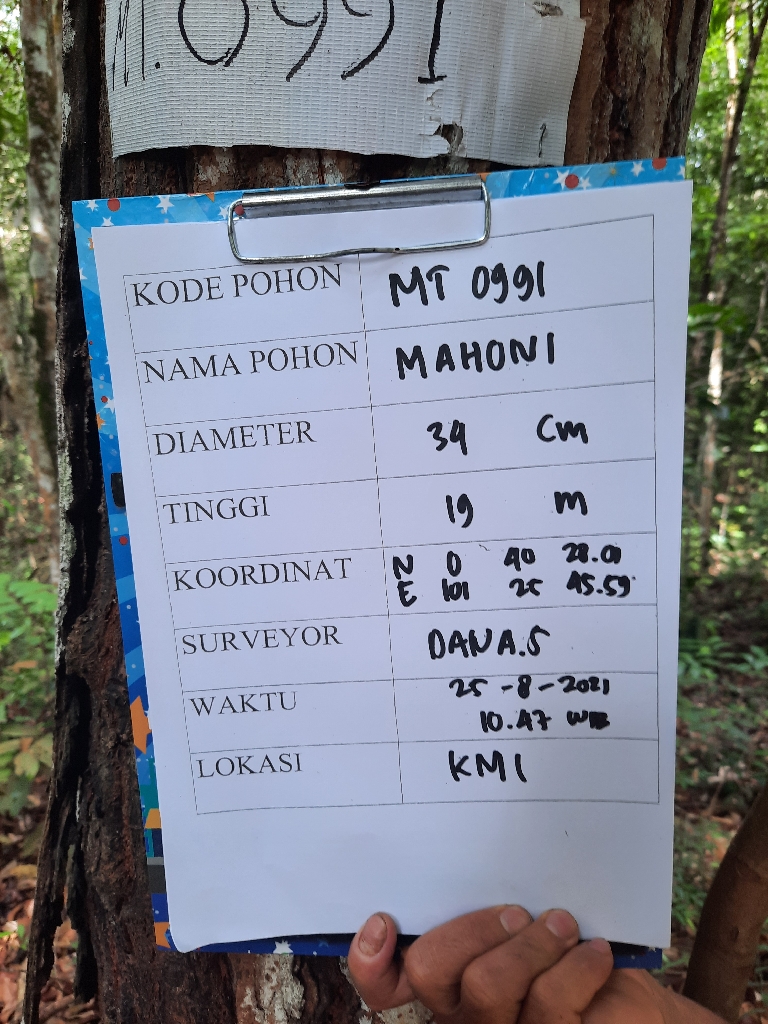 M.0991
KODE POHON MT 0991
NAMA POHON MAHONI
DIAMETER 34 Cm
TINGGI 19 m
KOORDINAT N 0 40 28.01
E 101 25 45.59
SURVEYOR DANA.S
WAKTU 25-8-2021
10.47 WIB
LOKASI KMI